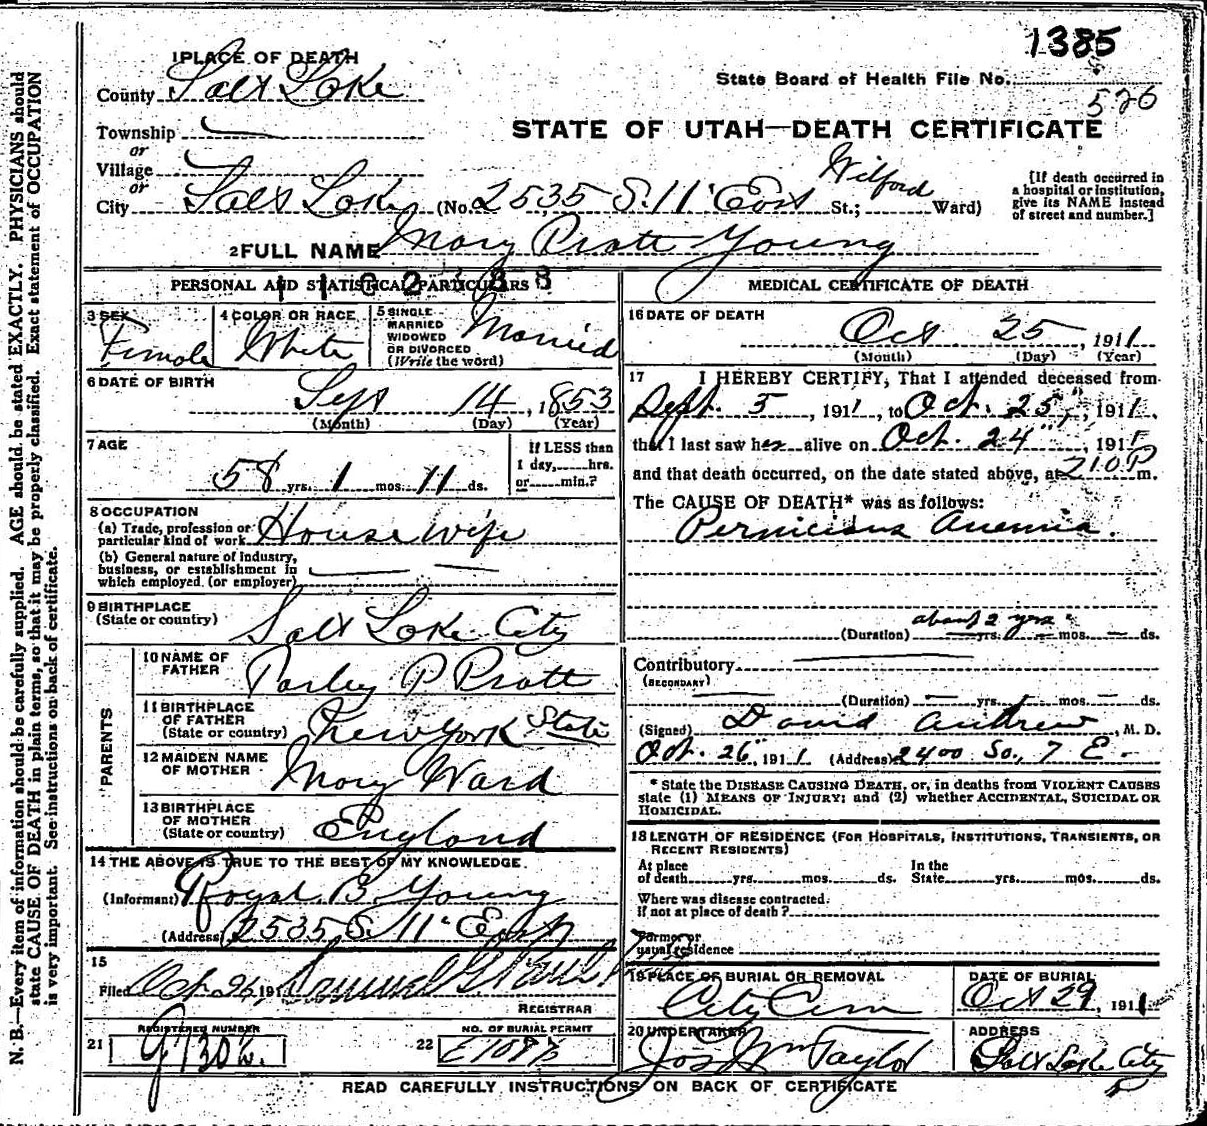 1385
State Board of Health File No.
526
STATE OF UTAH—DEATH CERTIFICATE
1 PLACE OF DEATH
County Salt Lake
Township
or
Village
or
City Salt Lake (No. 2535 S. 11" East St.; Wilford Ward)
[If death occurred in
a hospital or institution,
give its NAME instead
of street and number.]
2 FULL NAME Mary Pratt Young
PERSONAL AND STATISTICAL PARTICULARS
3 SEX Female
4 COLOR OR RACE White
5 SINGLE
MARRIED
WIDOWED
OR DIVORCED
(Write the word) Married
6 DATE OF BIRTH
Sept 14, 1853
(Month) (Day) (Year)
7 AGE
58 yrs. 1 mos. 11 ds.
If LESS than
1 day, hrs.
or min.?
8 OCCUPATION
(a) Trade, profession or
particular kind of work House Wife
(b) General nature of industry,
business, or establishment in
which employed (or employer)
9 BIRTHPLACE
(State or country) Salt Lake City
PARENTS
10 NAME OF
FATHER Parley P Pratt
11 BIRTHPLACE
OF FATHER
(State or country) New York State
12 MAIDEN NAME
OF MOTHER Mary Wood
13 BIRTHPLACE
OF MOTHER
(State or country) England
14 THE ABOVE IS TRUE TO THE BEST OF MY KNOWLEDGE.
(Informant) Royal B Young
(Address) 2535 S. 11" East
15
Filed Oct 26, 191 Samuel G.
REGISTRAR
REGISTERED NUMBER
21
NO. OF BURIAL PERMIT
22
MEDICAL CERTIFICATE OF DEATH
16 DATE OF DEATH
Oct 25, 1911
(Month) (Day) (Year)
17 I HEREBY CERTIFY, That I attended deceased from
Sept. 5, 1911, to Oct. 25", 1911,
that I last saw her alive on Oct. 24", 1911
and that death occurred, on the date stated above, at 210 P m.
The CAUSE OF DEATH* was as follows:
Pernicious Anemia.
about 2 yrs
(Duration) yrs. mos. ds.
Contributory
(SECONDARY)
(Duration) yrs. mos. ds.
(Signed) David Andrew, M. D.
Oct. 26", 1911 (Address) 2400 So, 7 E.
* State the DISEASE CAUSING DEATH, or, in deaths from VIOLENT CAUSES
state (1) MEANS OF INJURY; and (2) whether ACCIDENTAL, SUICIDAL OR
HOMICIDAL.
18 LENGTH OF RESIDENCE (FOR HOSPITALS, INSTITUTIONS, TRANSIENTS, OR
RECENT RESIDENTS)
At place
of death yrs. mos. ds.
In the
State yrs. mos. ds.
Where was disease contracted.
if not at place of death?
Former or
usual residence
19 PLACE OF BURIAL OR REMOVAL
City Cem
DATE OF BURIAL
Oct 29, 1911
20 UNDERTAKER
Jos Wm Taylor
ADDRESS
Salt Lake City
READ CAREFULLY INSTRUCTIONS ON BACK OF CERTIFICATE
N. B.—Every item of information should be carefully supplied. AGE should be stated EXACTLY. PHYSICIANS should
state CAUSE OF DEATH in plain terms, so that it may be properly classified. Exact statement of OCCUPATION
is very important. See instructions on back of certificate.